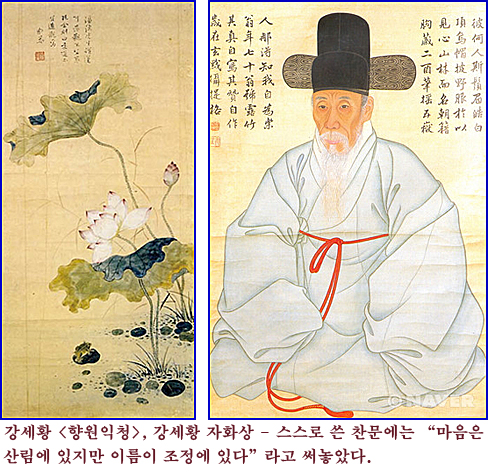 彼何人斯鬚眉皓白
頂烏帽披野服於以
見心山林而名朝籍
胸藏二酉筆搖五嶽
人那得知我自為樂
翁年七十翁號露竹
其真自寫其贊自作
歲在玄黓攝提格
NAVER
강세황 <향원익청>, 강세황 자화상 - 스스로 쓴 찬문에는 “마음은
산림에 있지만 이름이 조정에 있다” 라고 써놓았다.